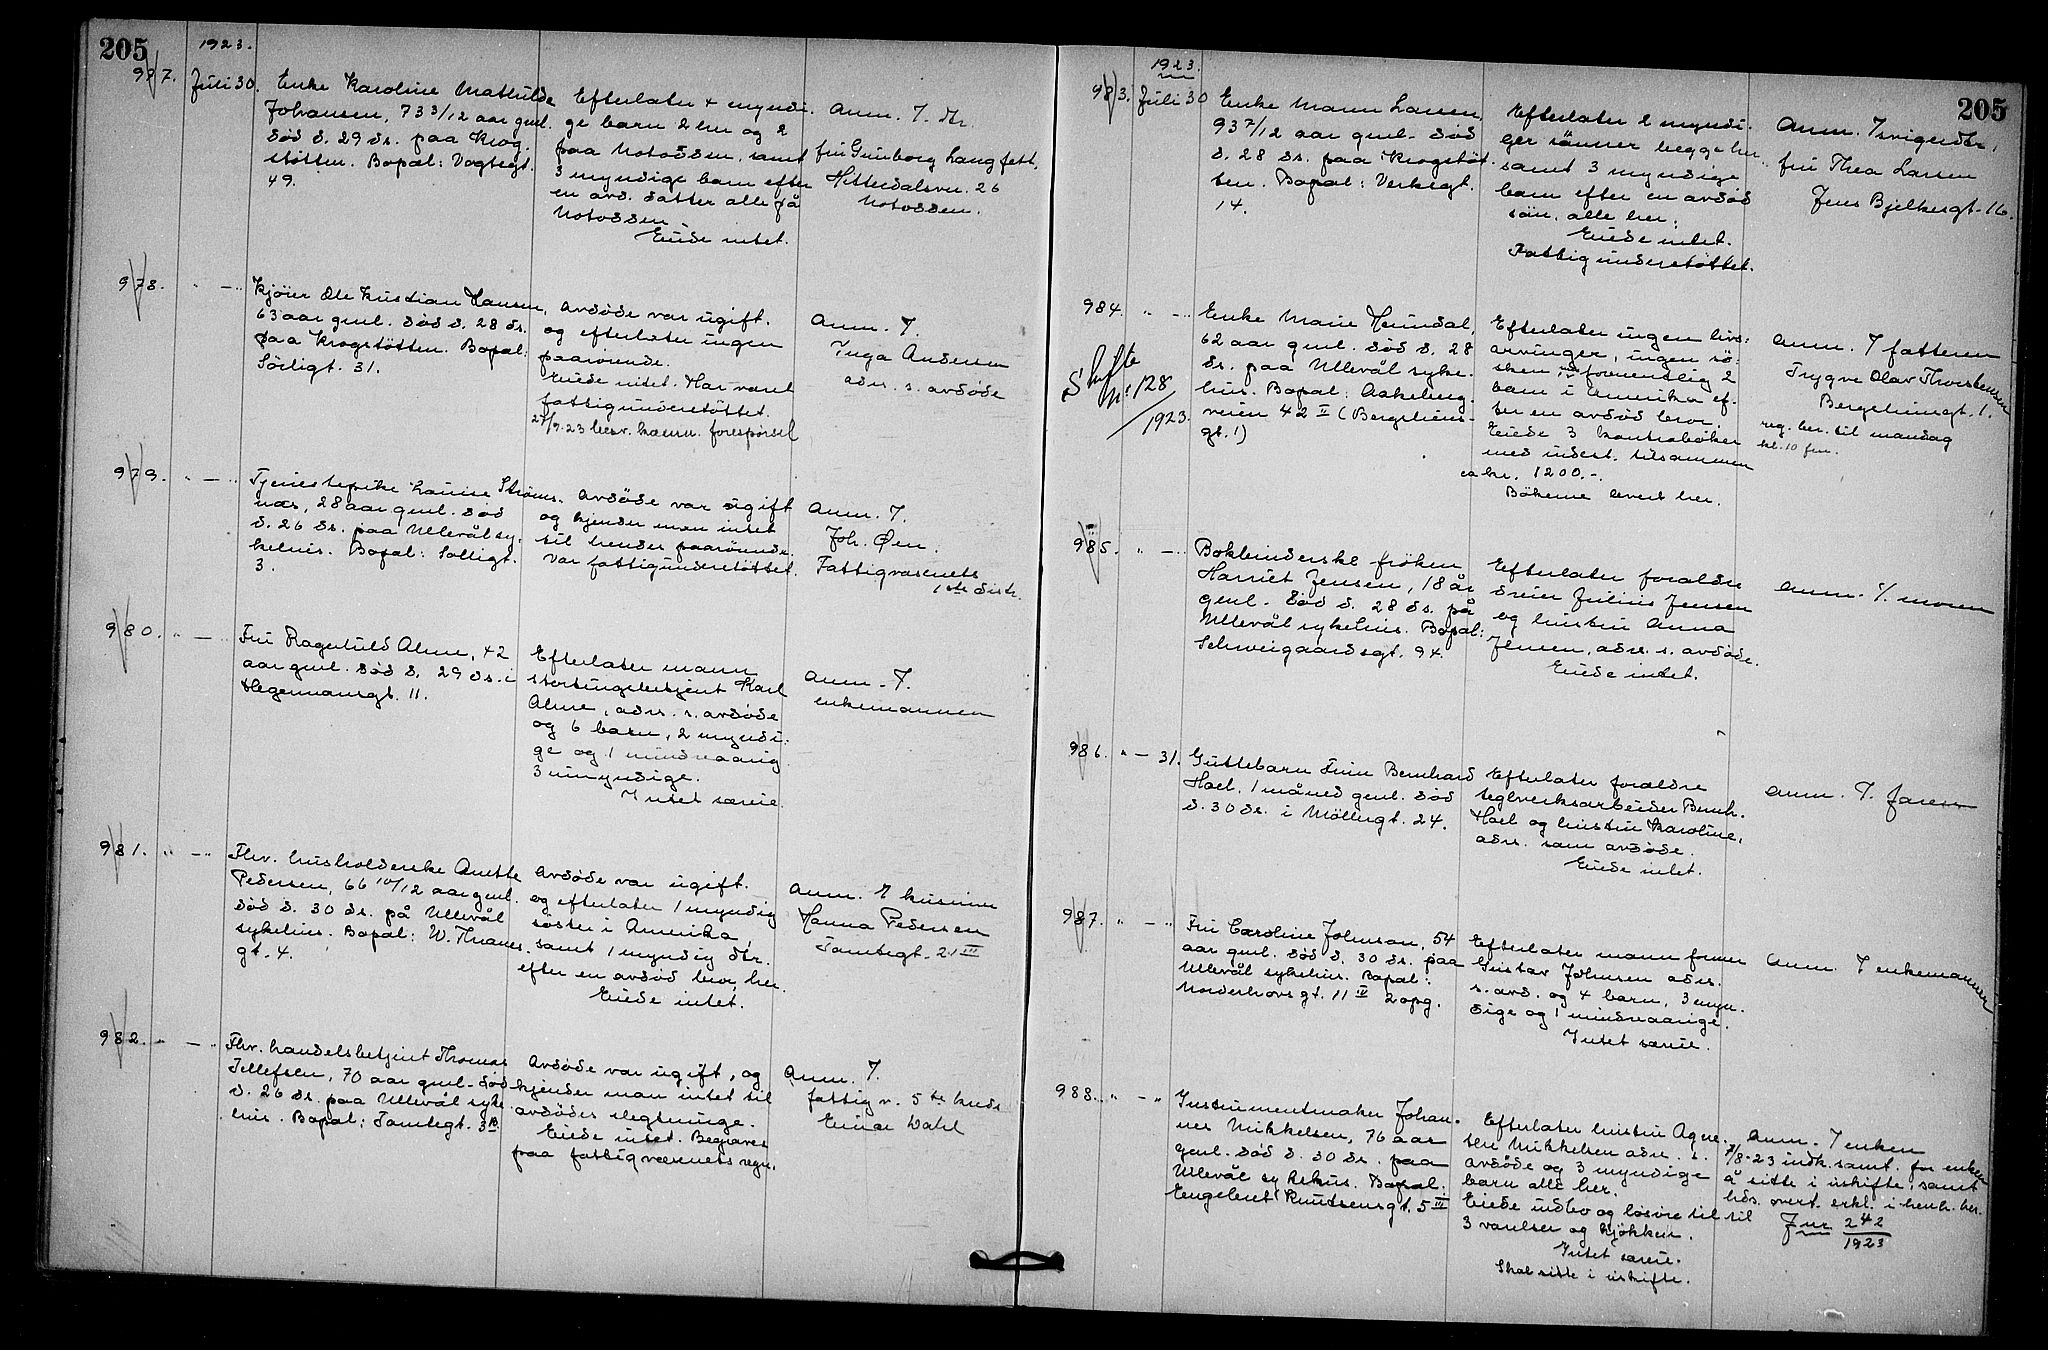 205
1923.
977.
Juli 30.
Enke Karoline Mathilde
Johansen, 73 3/12 aar gml.
død d. 29 ds. paa Krog-
støtten. Bopæl: Vogtsgt.
49.
Efterlater 4 myndi-
ge barn 2 her og 2
paa Notodden, samt
3 myndige barn efter
en avd. datter alle på
Notodden.
Eiede intet.
Anm. J. dtr.
fru Gunborg Langfett,
Hitterdalsvn. 26
Notodden.
978.
" — "
Kjøier Ole Kristian Hansen,
63 aar gml. død d. 28 ds.
paa Krogstøtten. Bopæl:
Sörligt. 31.
Avdøde var ugift.
og efterlater ingen
paarørende.
Eiede intet. Har været
fattigunderstøttet.
27/9.23 besv. kæmn. forespørsel
Anm. J.
Inga Andersen
adr. s. avdøde
979.
" — "
Tjenestepike Louise Strøms-
næs, 28 aar gml. død
d. 26 ds. paa Ullevål sy-
kehus. Bopæl: Solligt.
3.
Avdøde var ugift
og kjender man intet
til hendes paarørende.
Var fattigunderstøttet.
Anm. J.
Joh. Øen.
Fattigvæsenets
1ste distr.
980.
" — "
Fru Ragnhild Alme, 42
aar gml. død d. 29 ds. i
Hegermannsgt. 11.
Efterlater mann
stortingsbetjent Karl
Alme, adr. s. avdøde
og 6 barn, 2 myndi-
ge og 1 mindreaarig
3 umyndige.
Intet særeie.
Anm. J.
enkemannen
981.
" — "
Fhv. husholderske Anette
Pedersen, 66 10/12 aar gml.
død d. 30 ds. på Ullevål
sykehus. Bopæl: W. Thranes
gt. 4.
Avdøde var ugift.
og efterlater 1 myndig
søster i Amerika
samt 1 myndig dtr.
efter en avdød bror, her.
Eiede intet.
Anm. J kusinen
Hanna Pedersen
Tomtegt. 21 III
982.
" — "
Fhv. handelsbetjent Thomas
Tellefsen, 70 aar gml. død
d. 26 ds. paa Ullevål syke-
hus. Bopæl: Tomtegt. 3 B
Avdøde var ugift, og
kjender man intet til
avdødes slegtninge.
Eiede intet. Begraves
paa fattigvæsenets regn.
Anm. J.
fattigv. 5te kreds
Einar Dahl
205
1923.
983.
Juli 30
Enke Maren Larsen,
93 7/12 aar gml. død
d. 28 ds. paa Krogstøt-
ten. Bopæl: Verksgt.
14.
Efterlater 2 myndi-
ger sönner begge her
samt 3 myndige
barn efter en avdød
sön, alle her.
Eiede intet.
Fattigunderstøttet.
Anm. J svigerdtr.
fru Thea Larsen
Jens Bjelkesgt. 16.
984.
" — "
Skifte
nr. 128
/1923.
Enke Marie Heimdal,
62 aar gml. død d. 28
ds. paa Ullevål syke-
hus. Bopæl: Aakeberg-
veien 42 II (Bergsliens-
gt. 1)
Efterlater ingen livs-
arvinger, ingen sö-
sken, formentlig 2
barn i Amerika ef-
ter en avdød bror.
Eiede 3 kontrabøker
med indest. tilsammen
ca kr. 1200.-.
Bökerne levert her.
Anm. J fætteren
Trygve Olav Thorstensen
Bergsliensgt. 1.
reg. ber. til mandag
kl. 10 fm.
985.
" — "
Bokbinderske frøken
Harriet Jensen, 18 år
gml. død d. 28 ds. på
Ullevål sykehus. Bopæl:
Schweigaardsgt. 94.
Efterlater forældre
dreier Julius Jensen
og hustru Anna
Jensen, adr. s. avdøde.
Eiede intet.
Anm. J. moren
986.
" — 31.
Guttebarn Finn Bernhard
Hoel. 1 måned gml. død
d. 30 ds. i Möllergt. 24.
Efterlater forældre
teglverksarbeider Bernh.
Hoel og hustru Karoline,
adr. som avdøde.
Eiede intet.
Anm. J. faren
987.
" — "
Fru Caroline Johnson, 54
aar gml. død d. 30 ds. paa
Ullevål sykehus. Bopæl:
Norderhovsgt. 11 IV 2 opg.
Efterlater mann former
Gustav Johnsen adr.
s. avd. og 4 barn, 3 myn-
dige og 1 mindreaarige.
Intet særeie.
Anm. J enkemannen
988.
" — "
Instrumentmaker Johan-
nes Mikkelsen, 76 aar
gml. død d. 30 ds. paa
Ullevål sykehus. Bopæl:
Engebret Knudsensgt. 5 III
Efterlater hustru Agne-
the Mikkelsen adr. s.
avdøde og 3 myndige
barn alle her.
Eiede indbo og løsøre til
3 værelser og kjøkken.
Intet særeie.
Skal sitte i uskifte.
Anm. J enken
7/8-23 indk. samt. for enken
å sitte i uskifte, samt
til
Jnr 242
1923